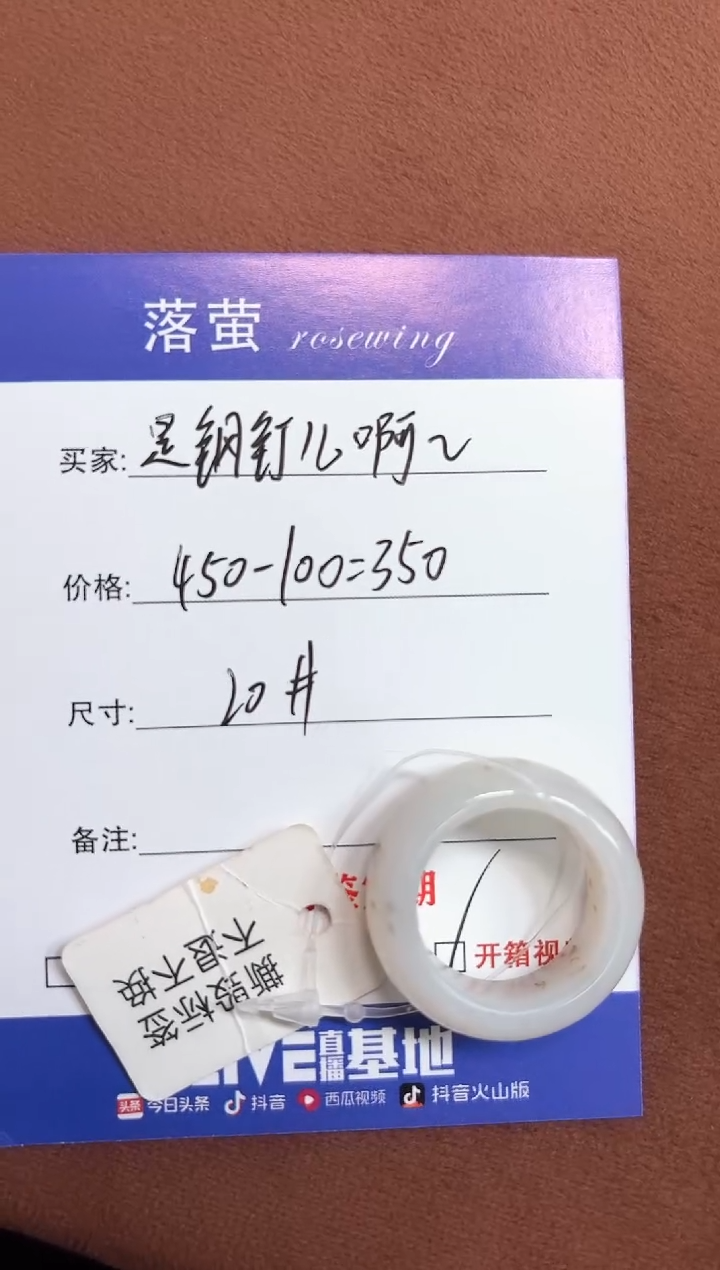 落萤 rosewing
买家: 是钢钉儿啊~
价格: 450-100=350
尺寸: 20#
备注:
期
开箱视
撕毁标签
不退不换
LIVE直播基地
头条 今日头条 抖音 西瓜视频 抖音火山版